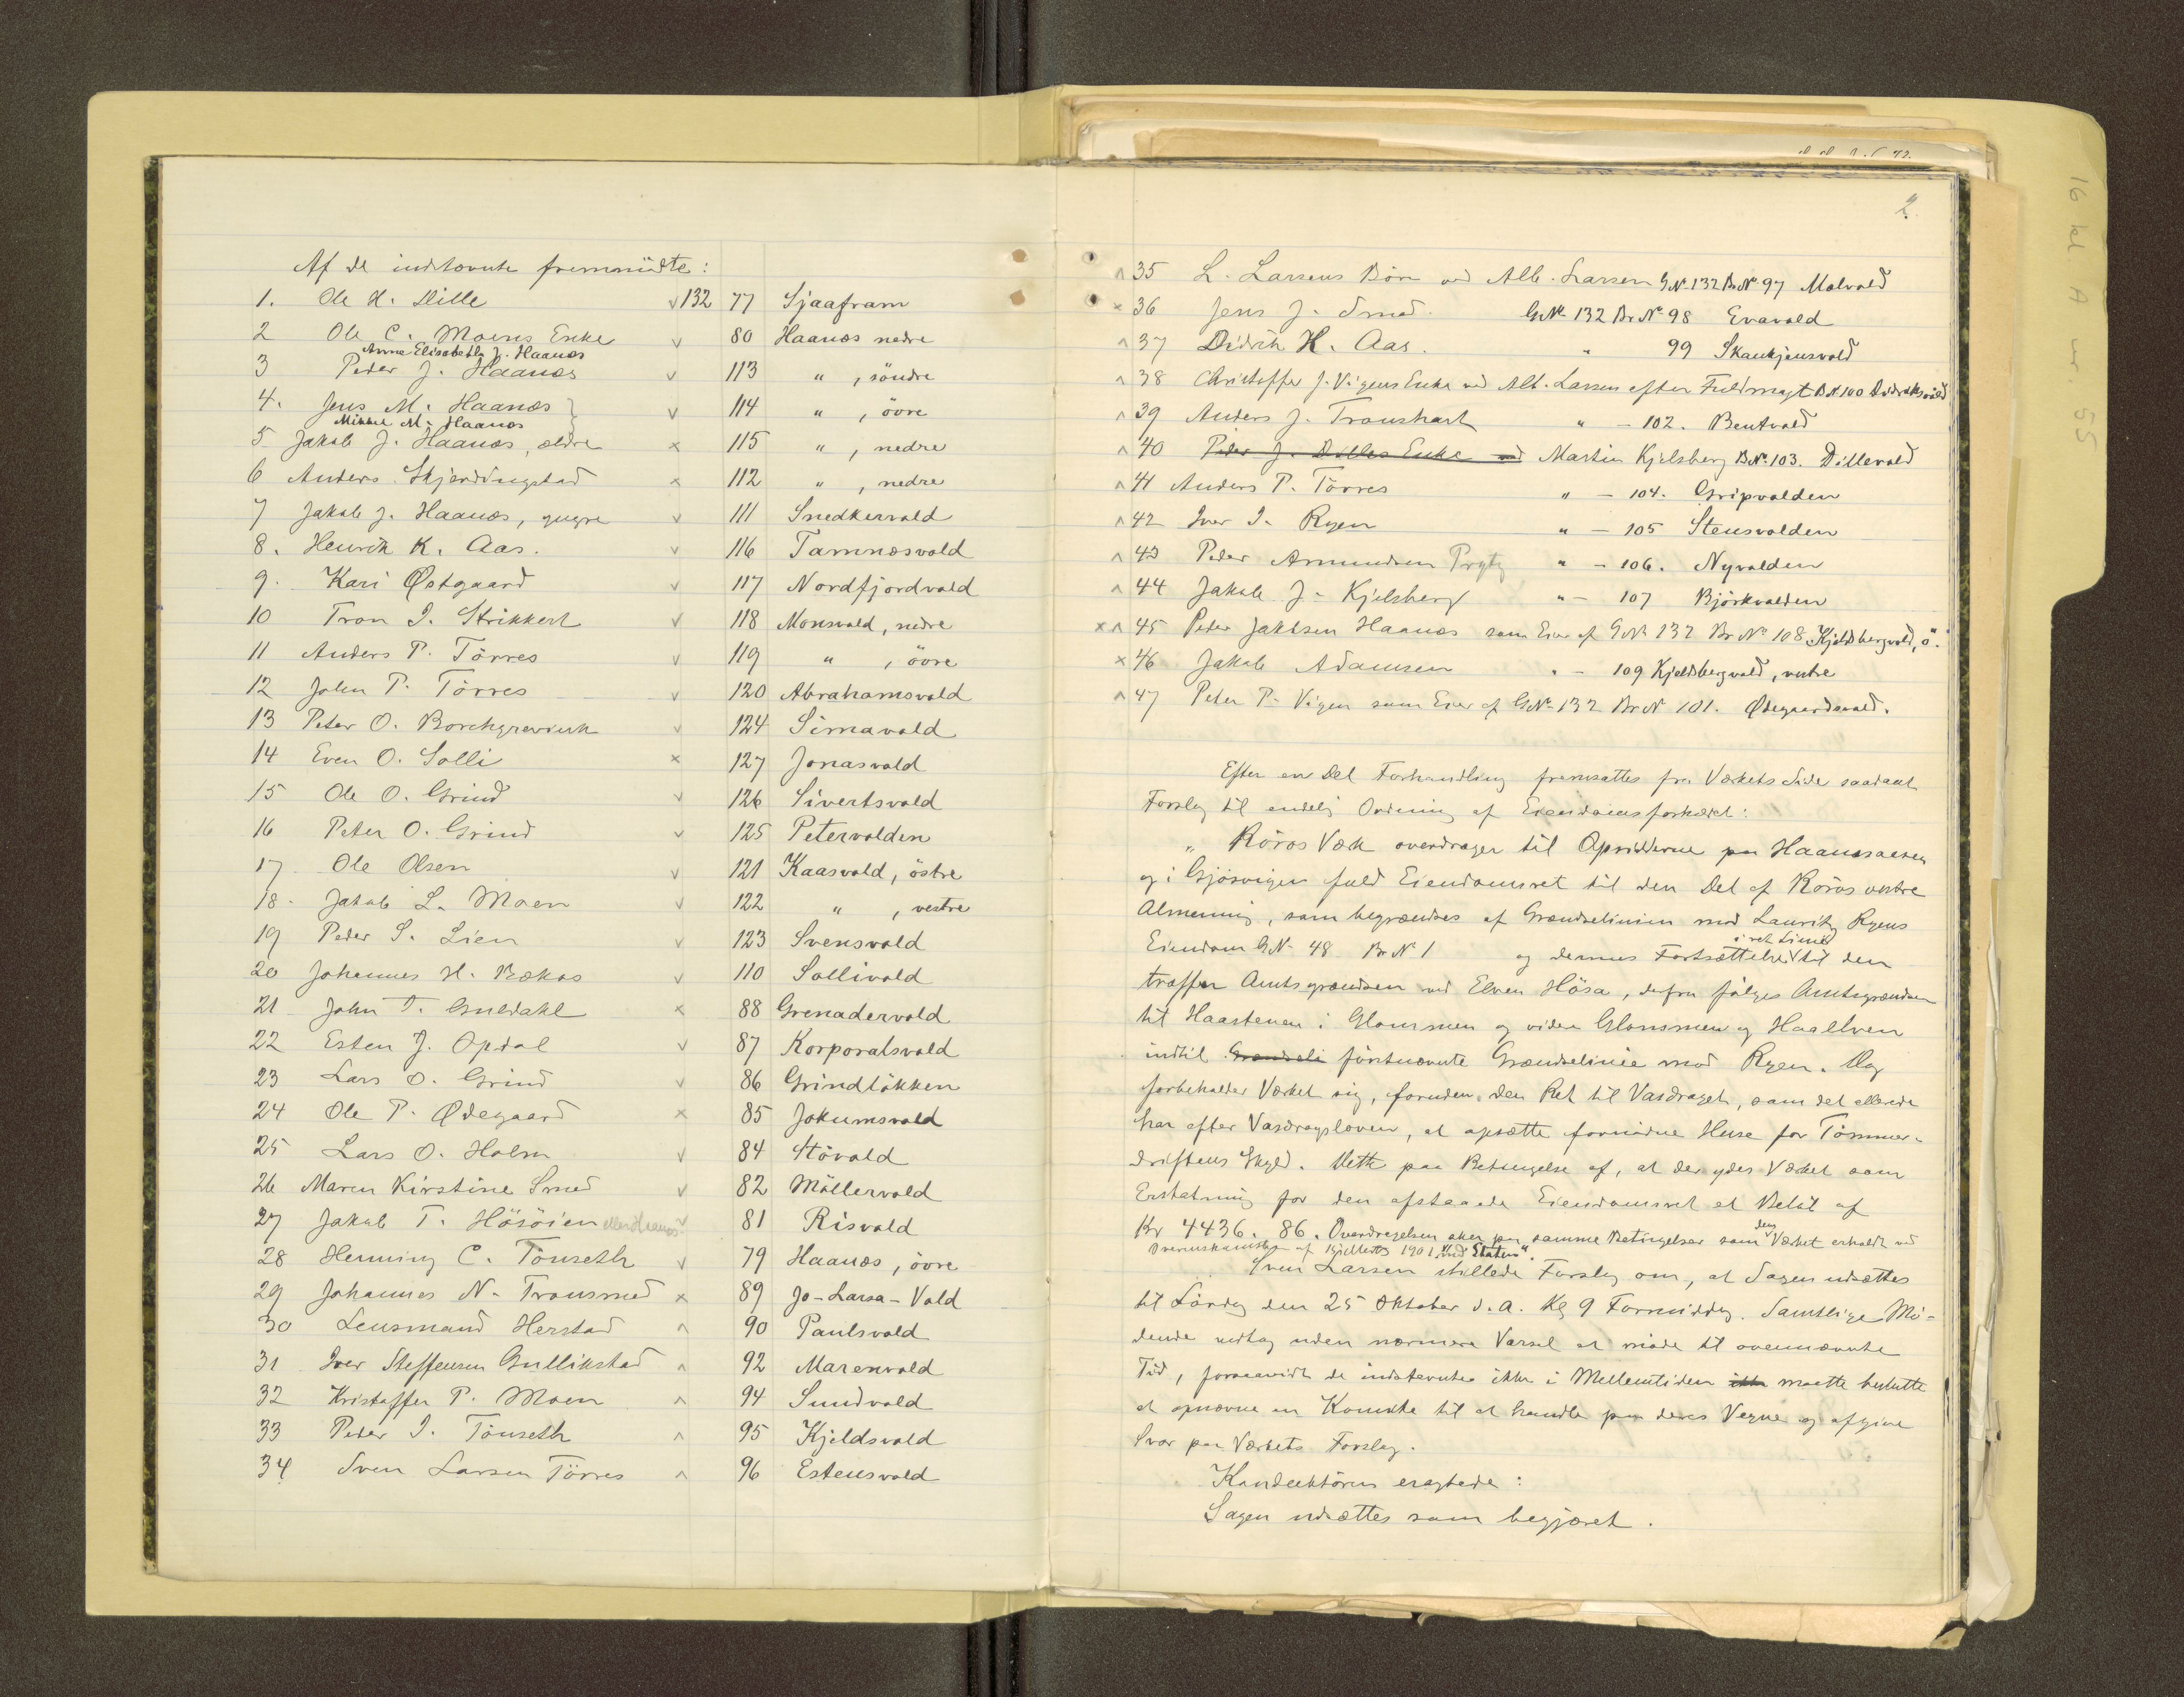 Af de indstevnte fremmödte:
1. Ole H. Dille v 132 77 Sjaafram
2 Ole C. Moens Enke v 80 Haanæs nedre
Anne Elisabeth J. Haanæs
3 Peder J. Haanæs v 113 " , söndre
4. Jens M. Haanæs v 114 " , övre
Mikkel M. Haanæs
5 Jakob J. Haanæs, ældre x 115 " , nedre
6 Anders Skjerdingstad x 112 " , nedre
7 Jakob J. Haanæs, yngre v 111 Snedkervold
8. Henrik K. Aas. v 116 Tamnæsvold
9. Kari Østgaard v 117 Nordfjordvold
10 Tron I. Strikkert v 118 Monsvold, nedre
11 Anders P. Törres v 119 " , övre
12 John P. Törres v 120 Abrahamsvold
13 Peter O. Borchgrevink v 124 Simavold
14 Even O. Solli x 127 Jonasvold
15 Ole O. Grind v 126 Sivertsvold
16 Peter O. Grind v 125 Petervolden
17 Ole Olsen v 121 Kaasvold, östre
18. Jakob L. Moen v 122 " , vestre
19 Peder S. Lien v 123 Svensvold
20 Johannes H. Bækos v 110 Sollivold
21 John T. Guldahl x 88 Grenadervold
22 Esten J. Opdal v 87 Korporalsvold
23 Lars O. Grind v 86 Grindlökken
24 Ole P. Ødegaard x 85 Jokumsvold
25 Lars O. Holm v 84 Stövold
26 Maren Kirstine Smed v 82 Möllervold
27 Jakob T. Hösöien eller Haanæs v 81 Risvold
28 Henning C. Tönseth v 79 Haanæs, övre
29 Johannes N. Tronsmed x 89 Jo-Larsa-Vold
30 Lensmand Herstad ^ 90 Paulsvold
31 Iver Steffensen Gullikstad ^ 92 Marenvold
32 Kristoffer P. Moen ^ 94 Sundvold
33 Peder I. Tönseth ^ 95 Kjeldsvold
34 Sven Larsen Törres ^ 96 Estensvold
2.
^ 35 L. Larsens Börn ved Alb. Larsen GNo 132 BrNo 97 Molvold
x 36 Jens J. Smed. GrNo 132 Br No 98 Evavold
^ 37 Didrik H. Aas. " 99 Skankjensvold
^ 38 Christoffer J. Vigens Enke ved Alb. Larsen efter Fuldmagt B.N. 100 Didriksvold
^ 39 Anders J. Tronshart " - 102. Bentvold
^ 40 Peder J. Dilles Enke ved Martin Kjelsberg B.No 103. Dillevold
^ 41 Anders P. Törres " - 104. Gripvolden
^ 42 Iver I. Ryen " - 105 Stensvolden
^ 43 Peder Amundsen Prytz " - 106. Nyvolden
^ 44 Jakob J. Kjelsberg " - 107 Björkvolden
x ^ 45 Peter Jakobsen Haanæs som Eier af GNo 132 Br No 108 Kjeldsbergvold, ö.
x 46 Jakob Adamsen " - 109 Kjeldsbergvold, vestre
^ 47 Peter P. Vigen som Eier af GNo 132 Br No 101. Ødegaardsvold.
Efter en Del Forhandling fremsattes fra Værkets Side saadant
Forslag til endelig Ordning af Eiendomsforholdet:
" Röros Værk overdrager til Opsidderne paa Haanæsaasen
og i Gjösvigen fuld Eiendomsret til den Del af Röros vestre
Almenning, som begrændses af Grændselinien mod Lauritz Ryens
Eiendom GNo 48 Br No 1 og dennes Fortsættelse i ret Linie til den
træffer Amtsgrændsen ved Elven Hösa, derfra fölges Amtsgrændsen
til Haastenen i Glommen og videre Glommen og Haaelven
indtil Grændseli förstnævnte Grændselinie mod Ryen. Dog
forbeholder Værket sig, foruden den Ret til Vasdraget, som det allerede
har efter Vasdragsloven, at opsætte fornödne Huse for Tömmer-
driftens Skyld. Dette paa Betingelse af, at der ydes Værket som
Erstatning for den afstaaede Eiendomsret et Belöb af
Kr 4436. 86. Overdragelsen sker paa samme Betingelser som den Værket erholdt ved
Overenskomst af 1901 med Staten".
Sven Larsen stillede Forslag om, at Sagen udsættes
til Lördag den 25 Oktober d.a. Kl 9 Formiddag. Samtlige Mö-
dende vedtog uden nærmere Varsel at möde til ovennævnte
Tid, forsaavidt de indstevnte ikke i Mellemtiden ikke maatte beslutte
at opnævne en Komite til at handle paa deres Vegne og afgive
Svar paa Værkets Forslag.
Konduktören eragtede:
Sagen udsættes som begjæret.
16 kl A nr. 55